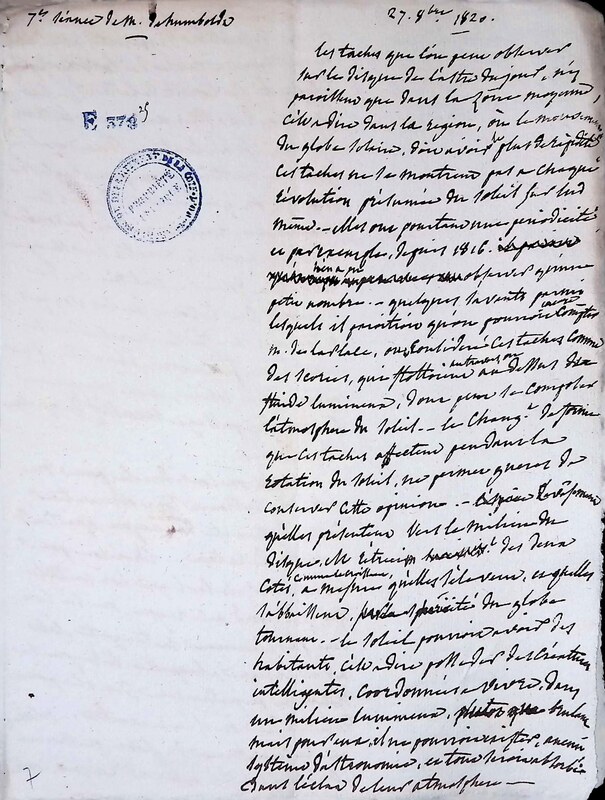 7e séance de M. de humboldt
27. 8bre 1820.
E 378 25
les taches que l'on peut observer
sur le disque de l'astre du jour, n'y
paroissent que dans la zone moyenne
c'est à dire dans la région, où le mouvement
du globe solaire, doit avoir plus de rapidité
ces taches ne se montrent pas a chaque
révolution présumée du soleil sur lui
même. - elles ont pourtant une périodicité
et par exemple, depuis 1816.
bien a pu
observer qu'un
petit nombre. - quelques savants parmi
lesquels il paroitroit qu'on pourroit compter
m. de la place, ont considéré ces taches comme
des scories, qui flottoient au dessus du
fluide lumineux, dont peut se composer
l'atmosphere du soleil. - le changt. de forme
que ces taches affectent pendant la
rotation du soleil, ne permet gueres de
conserver cette opinion. -
qu'elles présentent vers le milieu du
disque, se rétrécit des deux
cotés, a mesure qu'elles s'élevent, et qu'elles
s'abbaissent, du globe
tournent. - le soleil pourroit avoir des
habitants, c'est a dire posseder des créatures
intelligentes, coordonnées a vivre, dans
un milieu lumineux,
mais pour eux, il ne pourroit exister, aucun
systeme d'astronomie, et tout seroit absorbé
dans l'éclat de leur atmosphere -
7